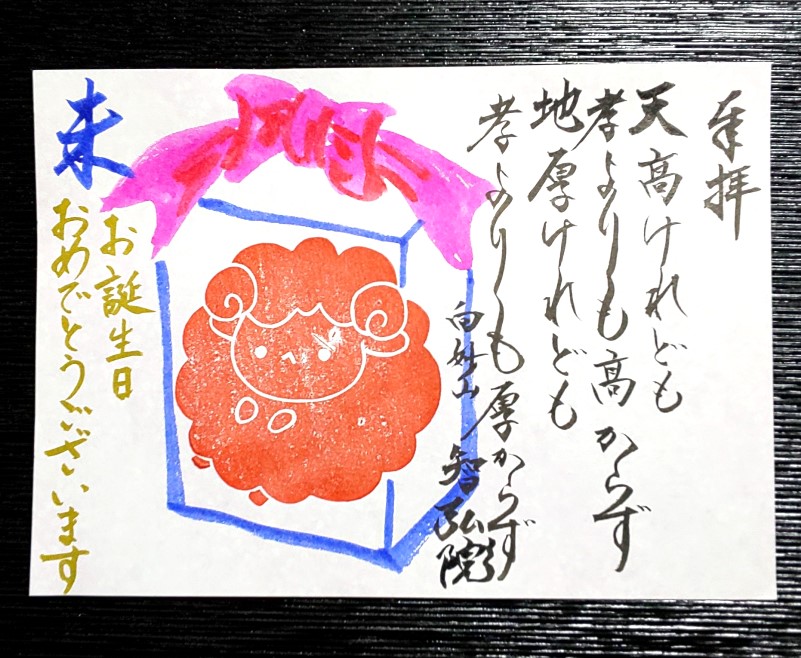 奉拝
天高けれども
孝よりも高からず
地厚けれども
孝よりも厚からず
向妙山 智弘院
未
お誕生日
おめでとうございます